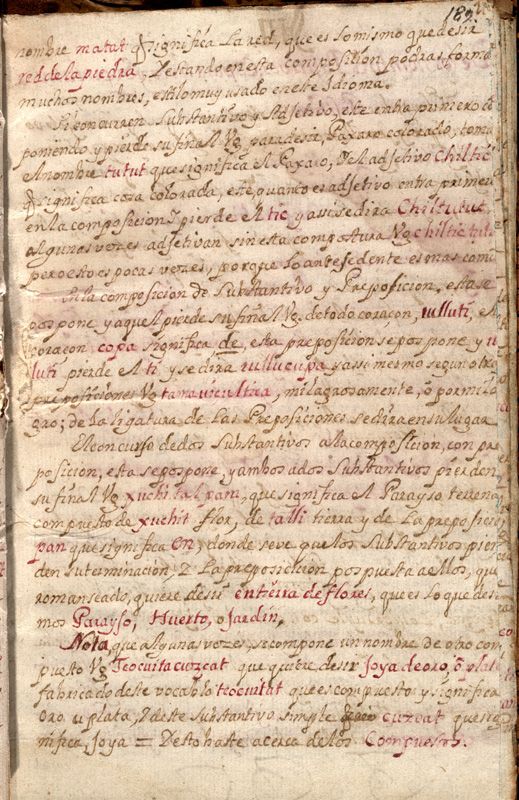 189.
nombre matat q̃ significa La red, que es lo mismo que desir
red de la piedra, Y estando en esta composision podras forma
muchos nombres, estilo muy usado en este Idioma.
Si concurren Substantivo y Adjetivo, este entra primero co
poniendo, y pierde su final Vg. para desir, Paxaro colorado, toma
el nombre tutut que significa el Paxaro, Y el adjetivo Chiltic
q̃ significa cosa colorada, este, quanto es adjetivo entra primer
en la composicion Y pierde el tic y assi se dira Chiltutut,
Algunas vezes adjetivan sin esta compostura Vg chiltic tutu
pero esto es pocas vezes, porque Lo antesedente es mas comu
En la composicion de Substantivo y Preposicion, esta se
pospone, y aquel pierde su final Vg. de todo coraçon, iulluti, el
coraçon, copa significa, de, esta preposicion se pospone y iu
luti pierde el ti y se dira iullucupa y assi mesmo segun otra
preposiciones Vg tamauicultica, milagrosamente, o por mila
gro; de la ligatura de las Preposiciones se dira en su lugar
El concurso de dos Substantivos a la composision, con pre
posicion, esta se pospone, y ambos a dos Substantivos pierden
su final Vg xuchitalpam, que significa el Parayso terrena
compuesto de xuchit flor, de talli tierra y de La preposicio
pan que significa en; donde se ve que los Substantivos pier
den su terminacion, Y La preposicion pospuesta a ellos, que
romanseado, quiere desir en tierra de flores, que es lo que desi
mos Parayso, Huerto, o Jardin,
Nota que algunas vezes se compone un nombre de otro com
puesto Vg Teocuitacuzcat que quiere desir Joya de oro, o plata
fabricado deste vocablo teocuitat que es compuesto y significa
oro u plata, Y deste Substantivo simple cuzcat que sig
nifica, Joya = Y esto baste acerca de los Compuestos.